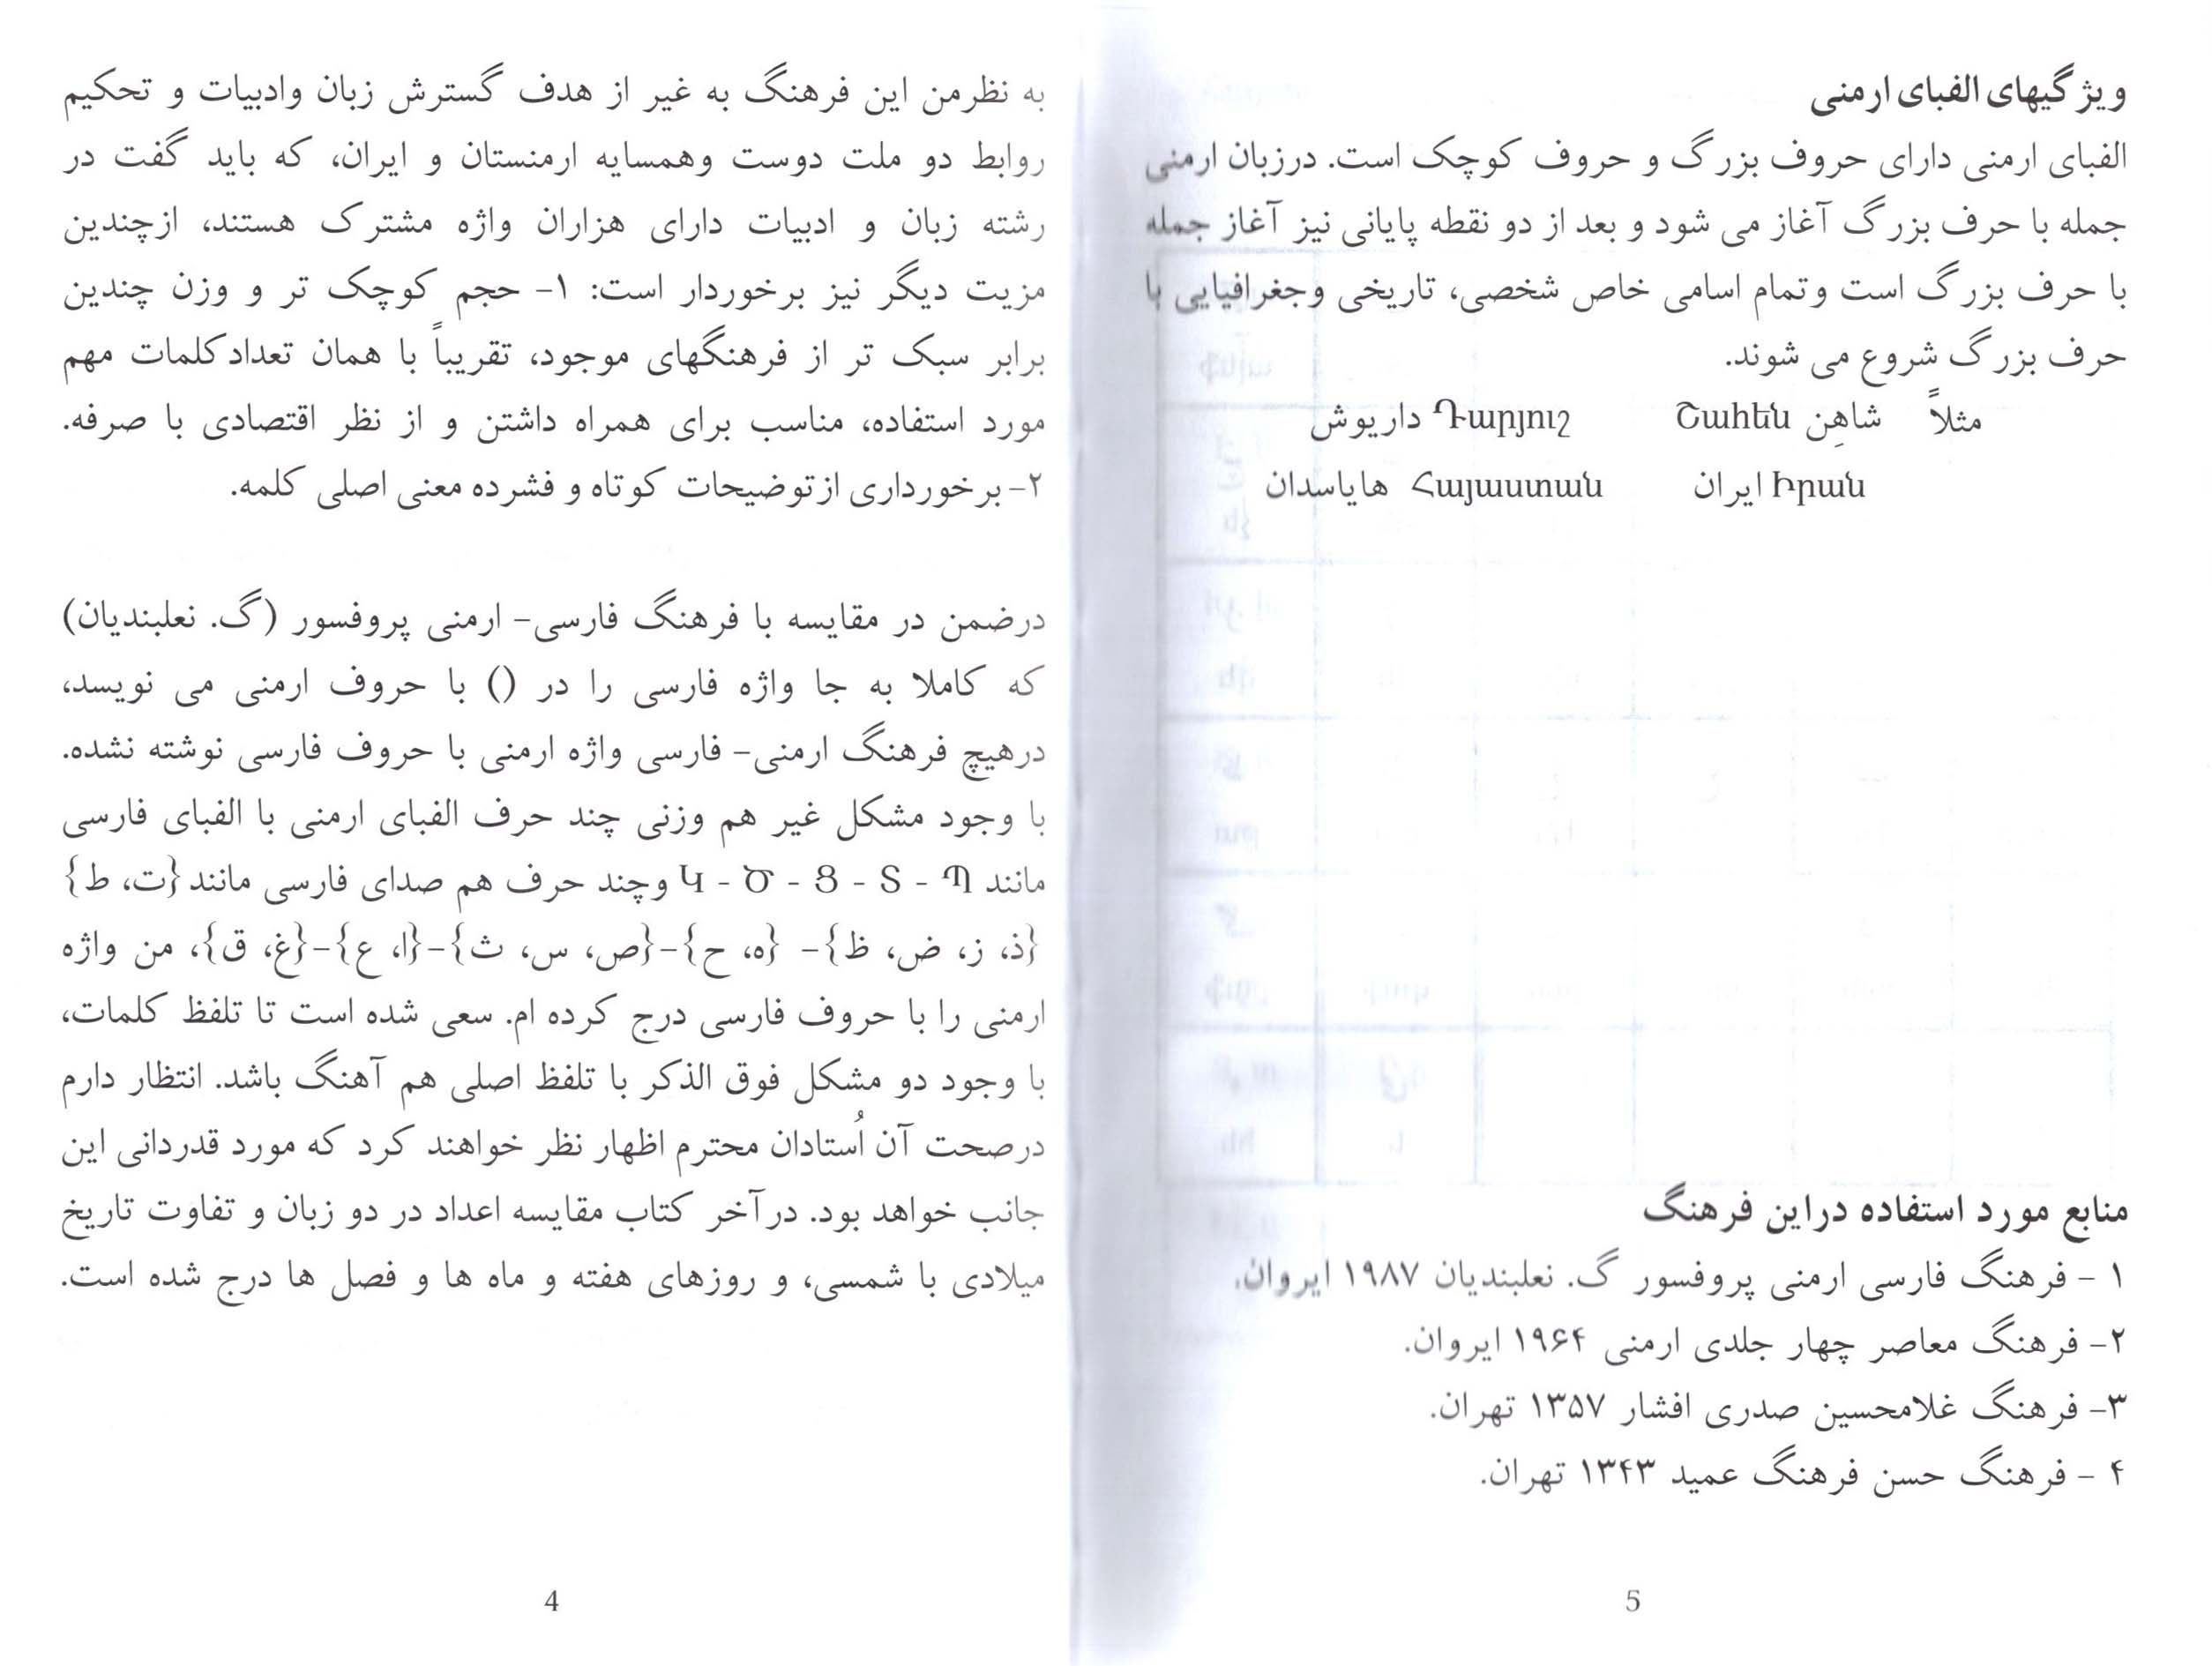 به نظرمن این فرهنگ به غیر از هدف گسترش زبان وادبیات و تحکیم
روابط دو ملت دوست وهمسایه ارمنستان و ایران، که باید گفت در
رشته زبان و ادبیات دارای هزاران واژه مشترک هستند، ازچندین
مزیت دیگر نیز برخوردار است: ۱- حجم کوچک تر و وزن چندین
برابر سبک تر از فرهنگهای موجود، تقریباً با همان تعدادکلمات مهم
مورد استفاده، مناسب برای همراه داشتن و از نظر اقتصادی با صرفه.
۲- برخورداری ازتوضیحات کوتاه و فشرده معنی اصلی کلمه.
درضمن در مقایسه با فرهنگ فارسی- ارمنی پروفسور (گ. نعلبندیان)
که کاملا به جا واژه فارسی را در () با حروف ارمنی می نویسد،
درهیچ فرهنگ ارمنی- فارسی واژه ارمنی با حروف فارسی نوشته نشده.
با وجود مشکل غیر هم وزنی چند حرف الفبای ارمنی با الفبای فارسی
مانند Կ - Ծ - Ց - Տ - Պ وچند حرف هم صدای فارسی مانند {ت، ط}
{ذ، ز، ض، ظ}- {ه، ح}-{ص، س، ث}-{ا، ع}-{غ، ق}، من واژه
ارمنی را با حروف فارسی درج کرده ام. سعی شده است تا تلفظ کلمات،
با وجود دو مشکل فوق الذکر با تلفظ اصلی هم آهنگ باشد. انتظار دارم
درصحت آن اُستادان محترم اظهار نظر خواهند کرد که مورد قدردانی این
جانب خواهد بود. درآخر کتاب مقایسه اعداد در دو زبان و تفاوت تاریخ
میلادی با شمسی، و روزهای هفته و ماه ها و فصل ها درج شده است.
4
ویژگیهای الفبای ارمنی
الفبای ارمنی دارای حروف بزرگ و حروف کوچک است. درزبان ارمنی
جمله با حرف بزرگ آغاز می شود و بعد از دو نقطه پایانی نیز آغاز جمله
با حرف بزرگ است وتمام اسامی خاص شخصی، تاریخی وجغرافیایی با
حرف بزرگ شروع می شوند.
مثلاً شاهِن Շահեն Դարյուշ داریوش
Իրան ایران Հայաստան هایاسدان
منابع مورد استفاده دراین فرهنگ
۱ - فرهنگ فارسی ارمنی پروفسور گ. نعلبندیان ۱۹۸۷ ایروان.
۲- فرهنگ معاصر چهار جلدی ارمنی ۱۹۶۴ ایروان.
۳- فرهنگ غلامحسین صدری افشار ۱۳۵۷ تهران.
۴ - فرهنگ حسن فرهنگ عمید ۱۳۴۳ تهران.
5